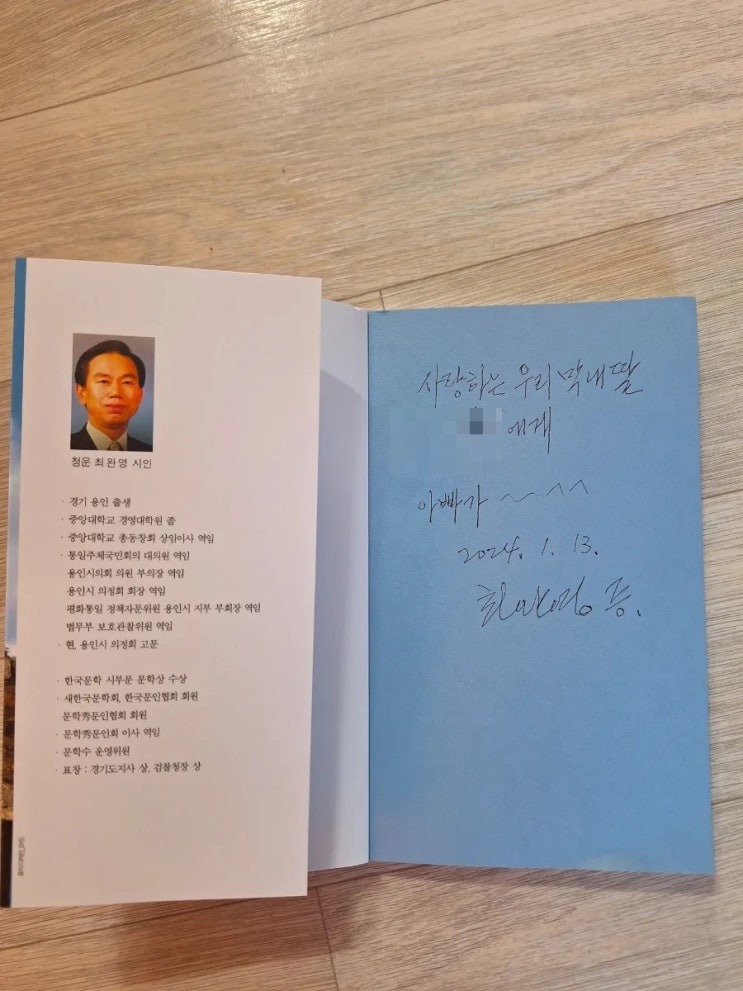 청운 최완영 시인
· 경기 용인 출생
· 중앙대학교 경영대학원 졸
· 중앙대학교 총동창회 상임이사 역임
· 통일주체국민회의 대의원 역임
용인시의회 의원 부의장 역임
용인시 의정회 회장 역임
평화통일 정책자문위원 용인시 지부 부회장 역임
법무부 보호관찰위원 역임
· 현, 용인시 의정회 고문
· 한국문학 시부문 문학상 수상
· 새한국문학회, 한국문인협회 회원
문학秀문인협회 회원
· 문학秀문인회 이사 역임
· 문학수 운영위원
· 표창 : 경기도지사 상, 검찰청장 상
사랑하는 우리 막내딸
에게
아빠가 ~ ^^
2024. 1. 13.
최완영 증.